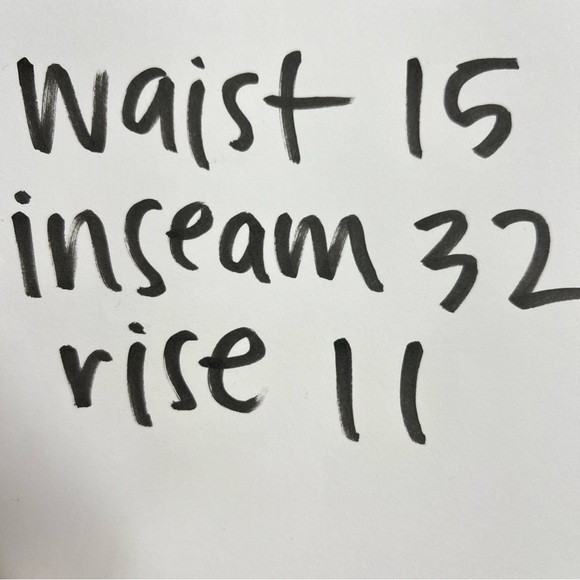 waist 15
inseam 32
rise 11